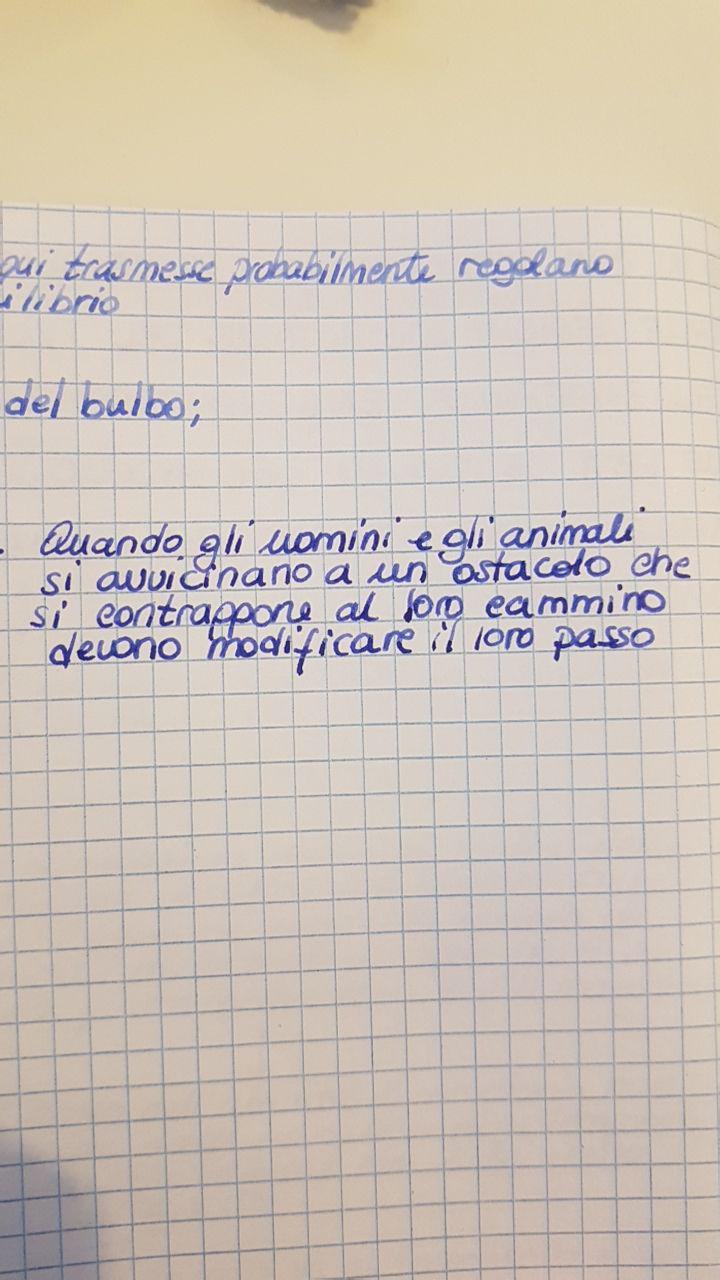 qui trasmesse probabilmente regolano
ilibrio
del bulbo;
. Quando gli uomini e gli animali
si avvicinano a un ostacolo che
si contrappone al loro cammino
devono modificare il loro passo